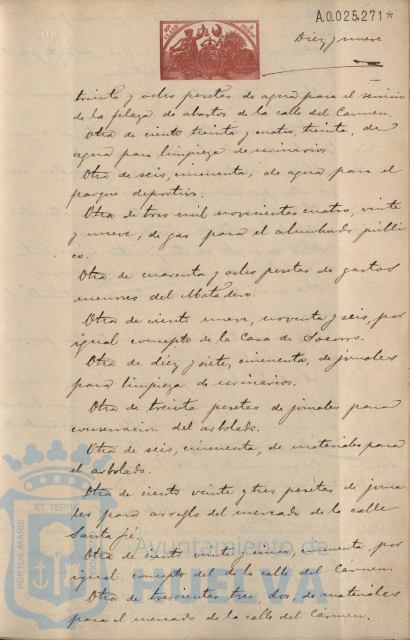 A.0.025.271*
Diez y nueve
treinta y ocho pesetas de agua para el servicio
de la plaza de abastos de la calle del Carmen.
Otra de ciento treinta y cuatro, treinta, de
agua para limpieza de urinarios.
Otra de seis, cincuenta, de agua para el
parque deportivo.
Otra de tres mil novecientas cuatro, veinte
y nueve, de gas para el alumbrado públi
co.
Otra de cuarenta y ocho pesetas de gastos
menores del Matadero.
Otra de ciento nueve, noventa y seis, por
igual concepto de la Casa de Socorro.
Otra de diez y siete, cincuenta, de jornales
para limpieza de urinarios.
Otra de treinta pesetas de jornales para
conservacion del arbolado.
Otra de seis, cincuenta, de materiales para
el arbolado.
Otra de ciento veinte y tres pesetas de jorna
les para arreglo del mercado de la calle
Santa Fé.
Otra de ciento veinte y cinco, cincuenta, por
igual concepto del de la calle del Carmen.
Otra de trescientas tres, dos, de materiales
para el mercado de la calle del Carmen.
PORTUS MARIS ET TERRAE
Ayuntamiento de
HUELVA